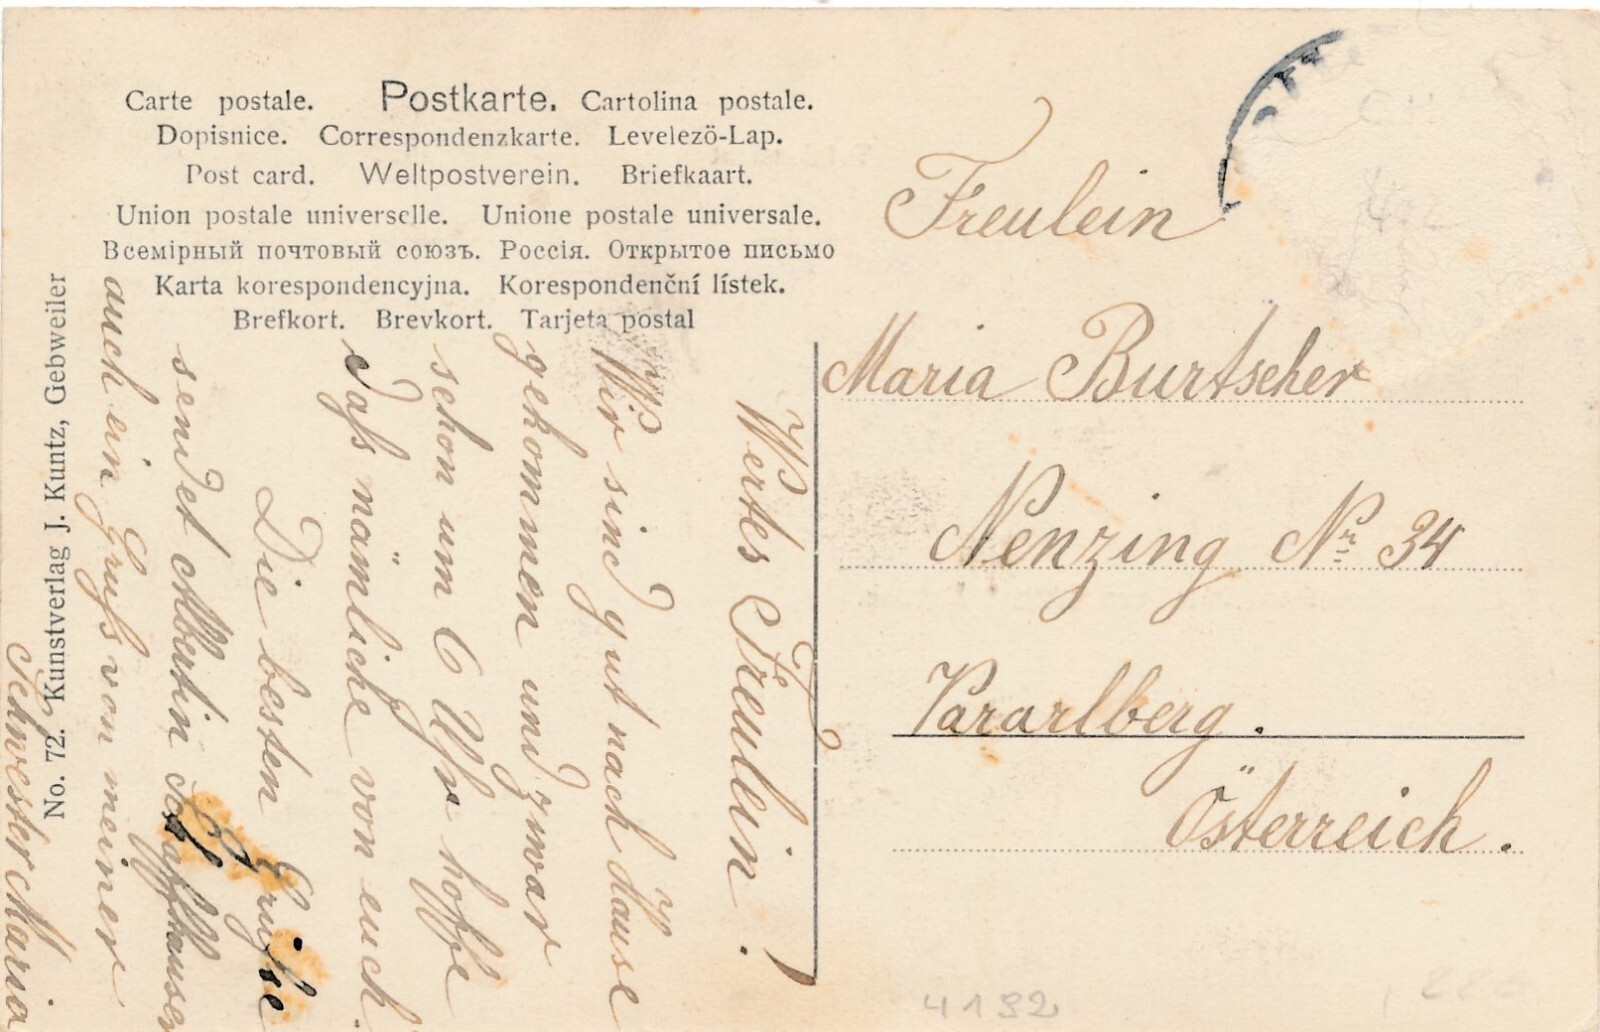 Carte postale. Postkarte. Cartolina postale.
Dopisnice. Correspondenzkarte. Levelezö-Lap.
Post card. Weltpostverein. Briefkaart.
Union postale universelle. Unione postale universale.
Всемірный почтовый союзъ. Россія. Открытое письмо
Karta korespondencyjna. Korespondenční lístek.
Brefkort. Brevkort. Tarjeta postal
No. 72. Kunstverlag J. Kuntz, Gebweiler
Wertes Freulein.
Wir sind gut nach Hause
gekommen und zwar
schon um 6 Uhr hoffe
dass nämliche von euch.
Die besten Grüsse
sendet Albertin Schaffhauser
auch ein Gruss von meiner
Schwester Maria
Freulein
Maria Burtscher
Nenzing Nr 34
Vararlberg.
Österreich.
4192